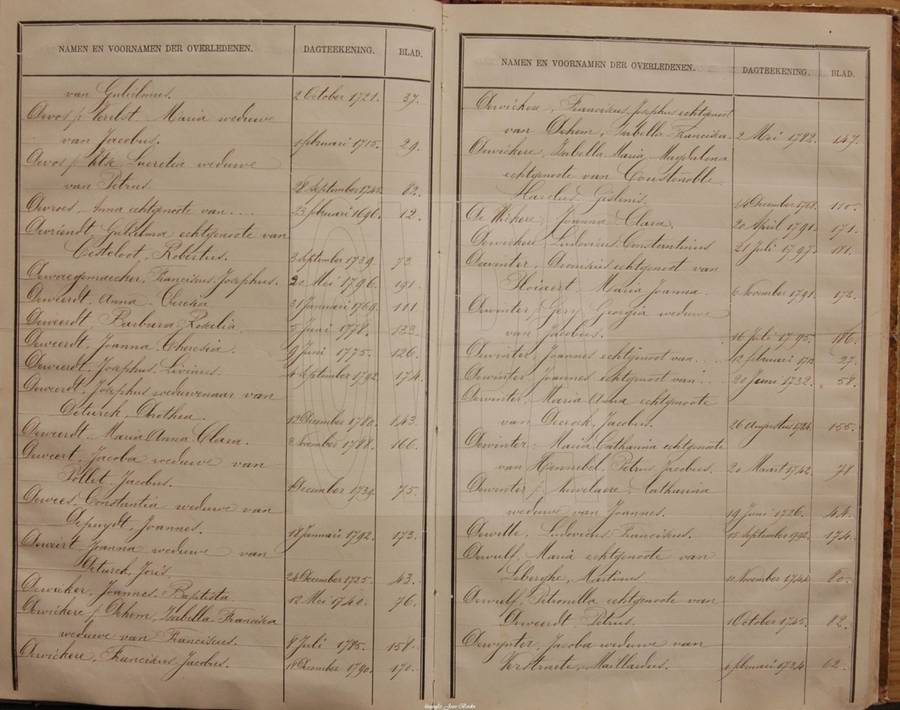 NAMEN EN VOORNAMEN DER OVERLEDENEN. DAGTEEKENING. BLAD.
van Gulielmus. 2 October 1721. 37.
Devos Maria weduwe
van Jacobus. februari 1715. 29.
Devos Lucretia weduwe
van Petrus. 28 September 82.
Devroe Anna echtgenoote van .... 23 februari 1696. 12.
Devriendt Gulielma echtgenoote van
Robertus. 3 September 1739. 73
Franciscus Josephus. 2 Mei 1796. 191.
Deweerdt Anna Theresia 31 Januari 1769. 111
Deweerdt, Barbara Rosalia. 5 Juni 1778. 133
Deweerdt, Joanna Theresia. 9 Juni 1775. 126.
Deweerdt, Josephus Livinus. 4 September 1792. 174.
Deweerdt, Josephus weduwenaar van
Deturck, Dorothea. 12 December 1780. 143.
Deweerdt Maria Anna Clara. November 1788. 166.
Deweert, Jacoba weduwe van
Pollet, Jacobus. December 1739. 75.
Dewees, Constantia weduwe van
Depuydt, Joannes. 18 Januari 1792. 173.
Deweert Joanna weduwe van
Deturck, Joris. 24 December 1725. 43.
Dewicker, Joannes Baptista 12 Mei 1740. 76.
Dewickere Dehem, Isabella Francisca
weduwe van Franciscus. 8 Juli 1785. 158.
Dewickere, Franciscus Jacobus. December 1790. 170.
NAMEN EN VOORNAMEN DER OVERLEDENEN. DAGTEEKENING. BLAD.
Dewickere, Franciscus Josephus echtgenoot
van Dehem, Isabella Francisca. 2 Mei 1782. 147.
Dewickere, Isabella Maria Magdalena
echtgenoote van Constenoble
Karolus Gislenus. 14 December 110.
De Wickere, Joanna Clara. 20 April 1791. 171.
Dewickere, Ludovicus Constantinus 21 Juli 1797. 181.
Dewinter, echtgenoot van
Maria Joanna. 6 November 1791. 172.
Dewinter Georgia weduwe
van Jacobus. 16 Juli 1795. 186.
Dewinter, Joannes echtgenoot van ... 12 februari 27.
Dewinter, Joannes echtgenoot van 20 Juni 1732. 58.
Dewinter, Maria echtgenoote
van Jacobus. 26 Augustus 155.
Dewinter, Maria Catharina echtgenoote
van Hennebel, Petrus Jacobus. 20 Maart 1742. 78
Dewinter Catharina
weduwe van Joannes. 19 Juni 1726. 44.
Dewitte, Ludovicus Franciscus. 12 September 1792. 174.
Dewulf, Maria echtgenoote van
Leberghe, Martinus. 11 November 1744. 80.
Dewulf, Petronilla echtgenoote van
Deweerdt, Petrus. 1 October 1745. 82.
Dewynter, Jacoba weduwe van
Verstraete, februari 1734. 62.